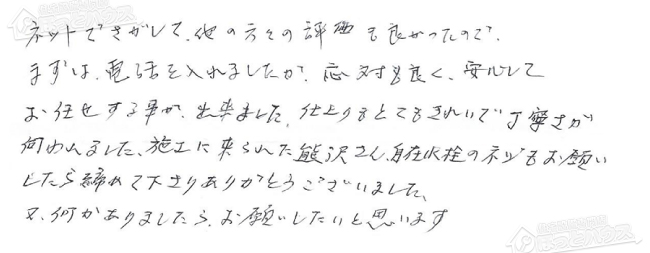 ネットでさがして、他の方々の評価も良かったので、
まずは、電話を入れましたが、応対も良く、安心して
お任せする事が、出来ました。仕上りもとてもきれいで丁寧さが
伺わんました、施工に来られた熊沢さん、自在水栓のネジもお願い
したら締めて下さりありがとうございました、
又、何かありましたら、お願いしたいと思います